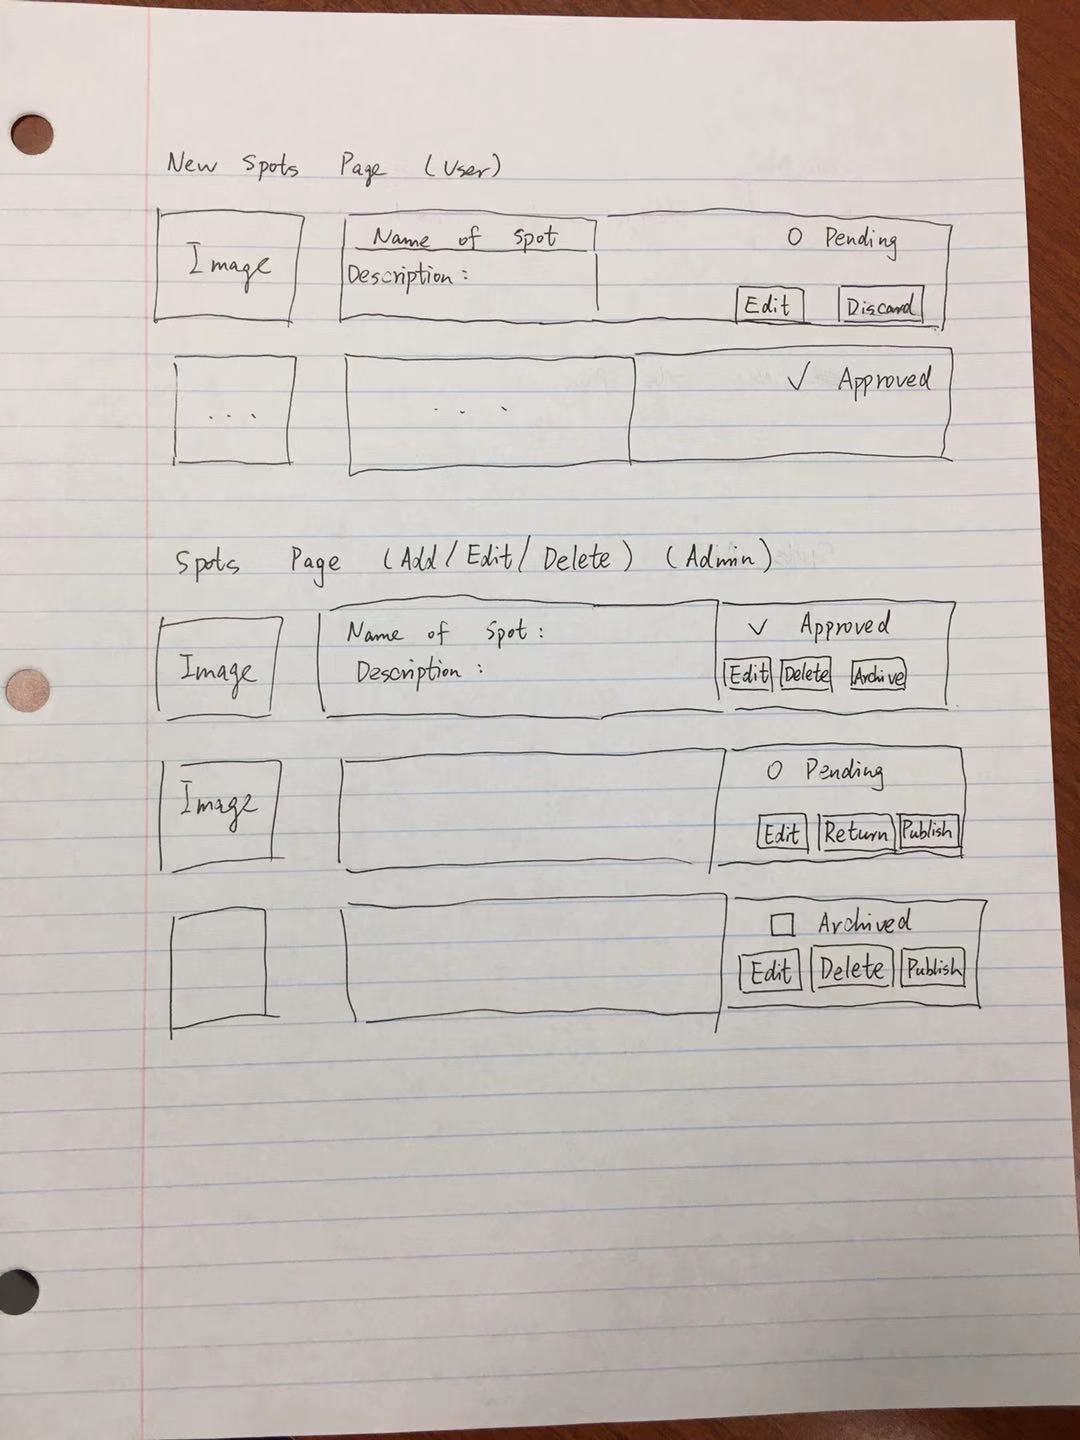 New Spots Page (User)
Image
Name of Spot
Description :
O Pending
Edit Discard
...
...
✓ Approved
Spots Page (Add/Edit/Delete) (Admin)
Image
Name of Spot :
Description :
✓ Approved
Edit Delete Archive
Image
O Pending
Edit Return Publish
□ Archived
Edit Delete Publish